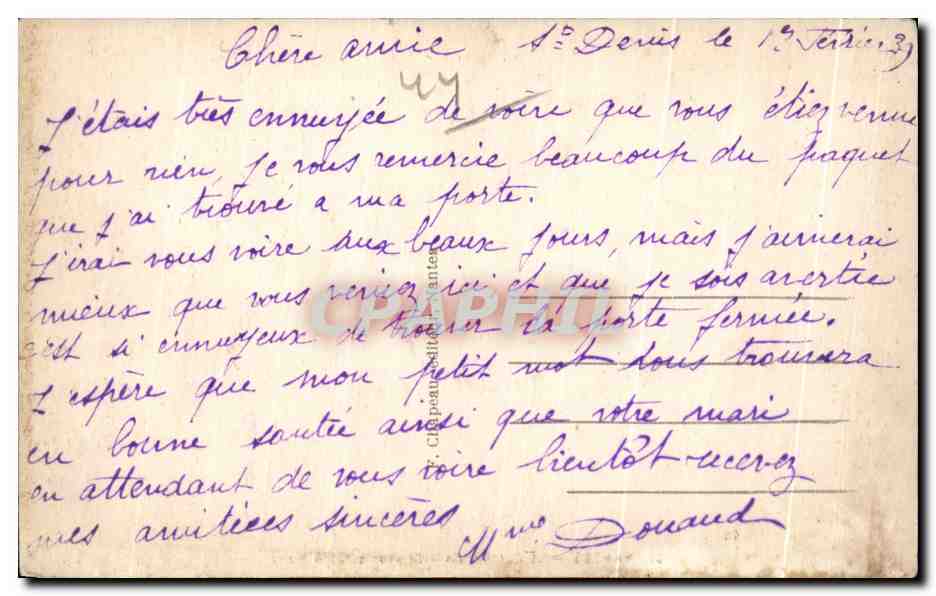 Chère amie St Denis le 1er Février 39
44
J'étais très ennuyée de voire que vous étiez venue
pour rien, je vous remercie beaucoup du paquet
que j'ai trouvé a ma porte.
J'irai vous voire aux beaux jours, mais j'aimerai
mieux que vous veniez ici et que je sois avertie
c'est si ennuyeux de trouver la porte fermée.
J'espère que mon petit mot vous trouvera
en bonne santée ainsi que votre mari
en attendant de vous voire bientôt recevez
mes amitiées sincères
Mme Douaud
F. Chapeau, éditeur, Nantes
CPAPHIL